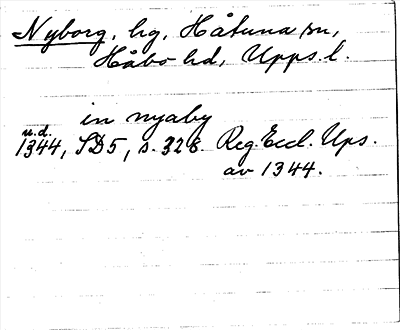 Nyborg, hg, Håtuna sn,
Håbo hd, Upps. l.
in nyaby
u.d.
1344, SD5, s. 328. Reg. Eccl. Ups.
av 1344.